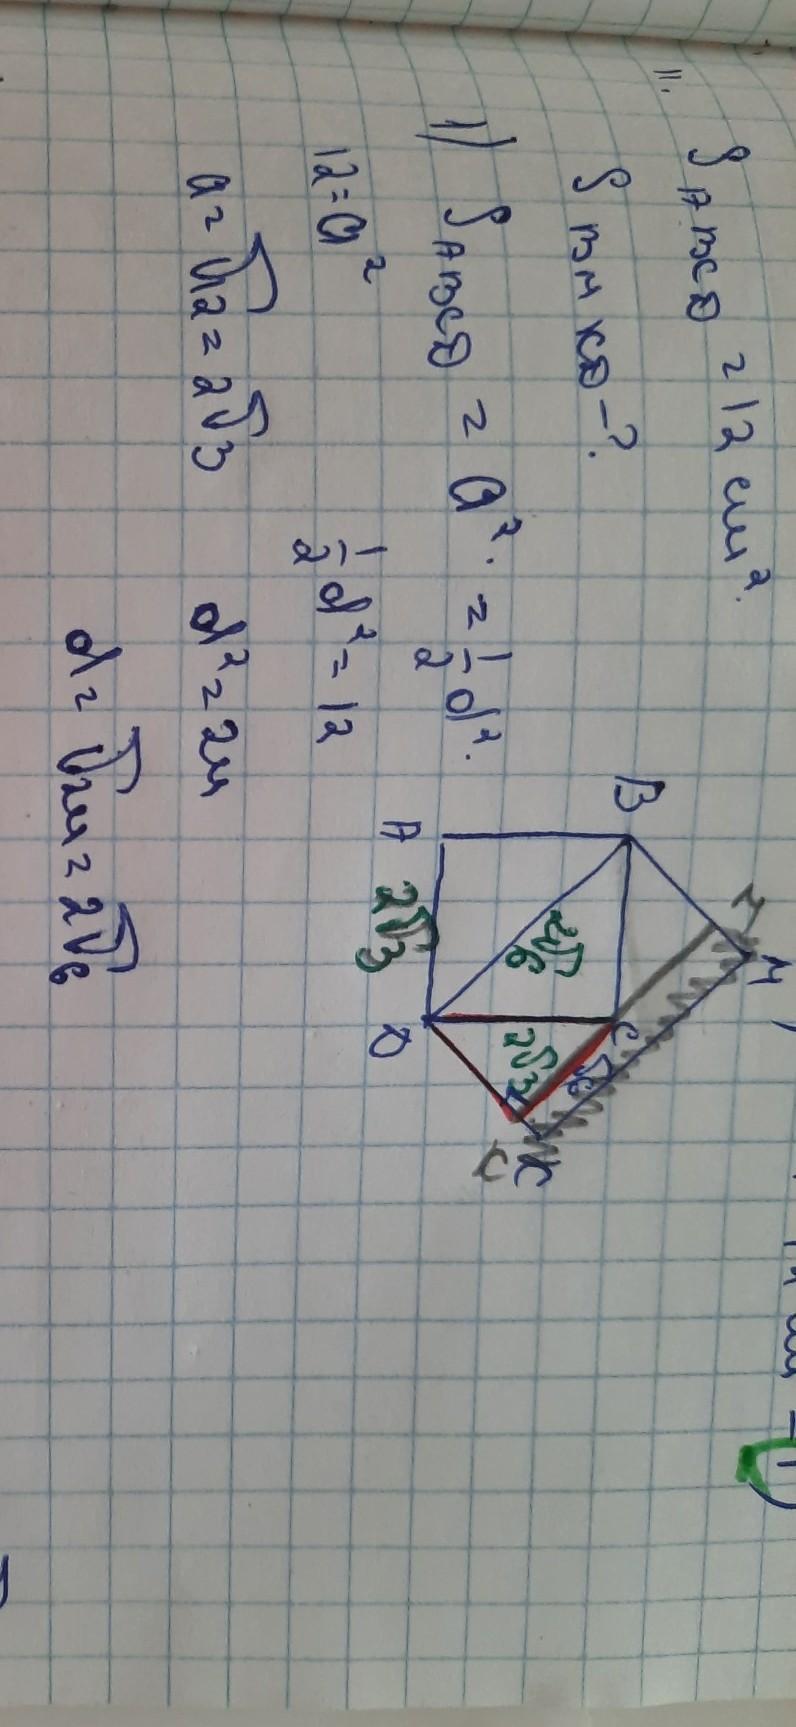 11. S ABCD = 12 см².
S BMKD - ?
1) S ABCD = a² = ½ d².
12 = a²
½ d² = 12
a = √12 = 2√3
d² = 24
d = √24 = 2√6
B
M
A
D
C
K
2√6
2√3
2√3
√6